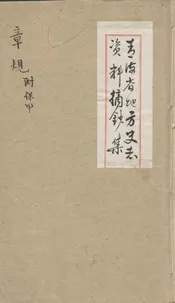 青海省地方史志
资料摘钞集
章规附保甲